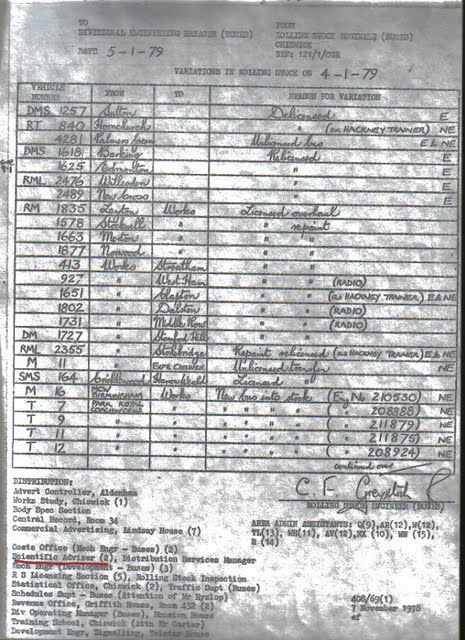 TO FROM
DIVISIONAL ENGINEERING MANAGER (BUSES) ROLLING STOCK ENGINEER (BUSES)
CHISWICK
DATE 5-1-79 REF: 121/1/CGR
VARIATIONS IN ROLLING STOCK ON 4-1-79
VEHICLE NUMBER FROM TO REASON FOR VARIATION
DMS 1257 Sutton Delicensed E
RT 840 Hornchurch " (ex HACKNEY TRAINER) NE
4281 Palmers Green Unlicensed bus E & NE
DMS 1618 Barking Relicensed E
1625 Edmonton " E
RML 2476 Willesden " E
2489 New Cross " E
RM 1835 Leyton Works Licensed overhaul
1578 Stockwell " " repaint
1663 Merton " " "
1877 Norwood " " "
413 Works Streatham " "
927 " West Ham " " (RADIO)
1651 " Clapton " " (as HACKNEY TRAINER) E & NE
1802 " Dalston " " (RADIO)
1731 " Middle Row " " (RADIO)
DM 1727 " Stamford Hill " "
RML 2365 " Stockbridge Repaint relicensed (as HACKNEY TRAINER) E & NE
M 11 " Unlicensed transfer NE
SMS 164 Cricklewood Licensed "
M 16 MCW BIRMINGHAM Works New bus into stock (Eng No 210530) NE
T 7 PARK ROYAL " " " " " ( " 208888) NE
T 9 " " " " " " ( " 211879) NE
T 11 " " " " " " ( " 211875) NE
T 12 " " " " " " ( " 208924) NE
continued over
C. F. Greystok
ROLLING STOCK ENGINEER (BUSES)
DISTRIBUTION:
Advert Controller, Aldenham
Works Study, Chiswick (1)
Body Spec Section
Central Record, Room 34
Commercial Advertising, Lindsay House (7)
AREA ADMIN ASSISTANTS: Q(9),AR(12),W(12),
TL(13), WH(11), AV(12), HX(10), WN (15),
R (14)
Costs Office (Mech Engr - Buses) (2)
Scientific Adviser (2), Distribution Services Manager
Mech Engr (Development - Buses) (3)
R S Licensing Section (5), Rolling Stock Inspection
Statistical Office, Chiswick (2), Traffic Dupt (Buses)
Schedules Supt - Buses (Attention of Mr Hyslop)
Revenue Office, Griffith House, Room 432 (2)
Div Operating Manager (Buses), Mansion House
Training School, Chiswick (attn Mr Carter)
Development Engr, Signalling, Telstar House
408/69(1)
7 November 1978